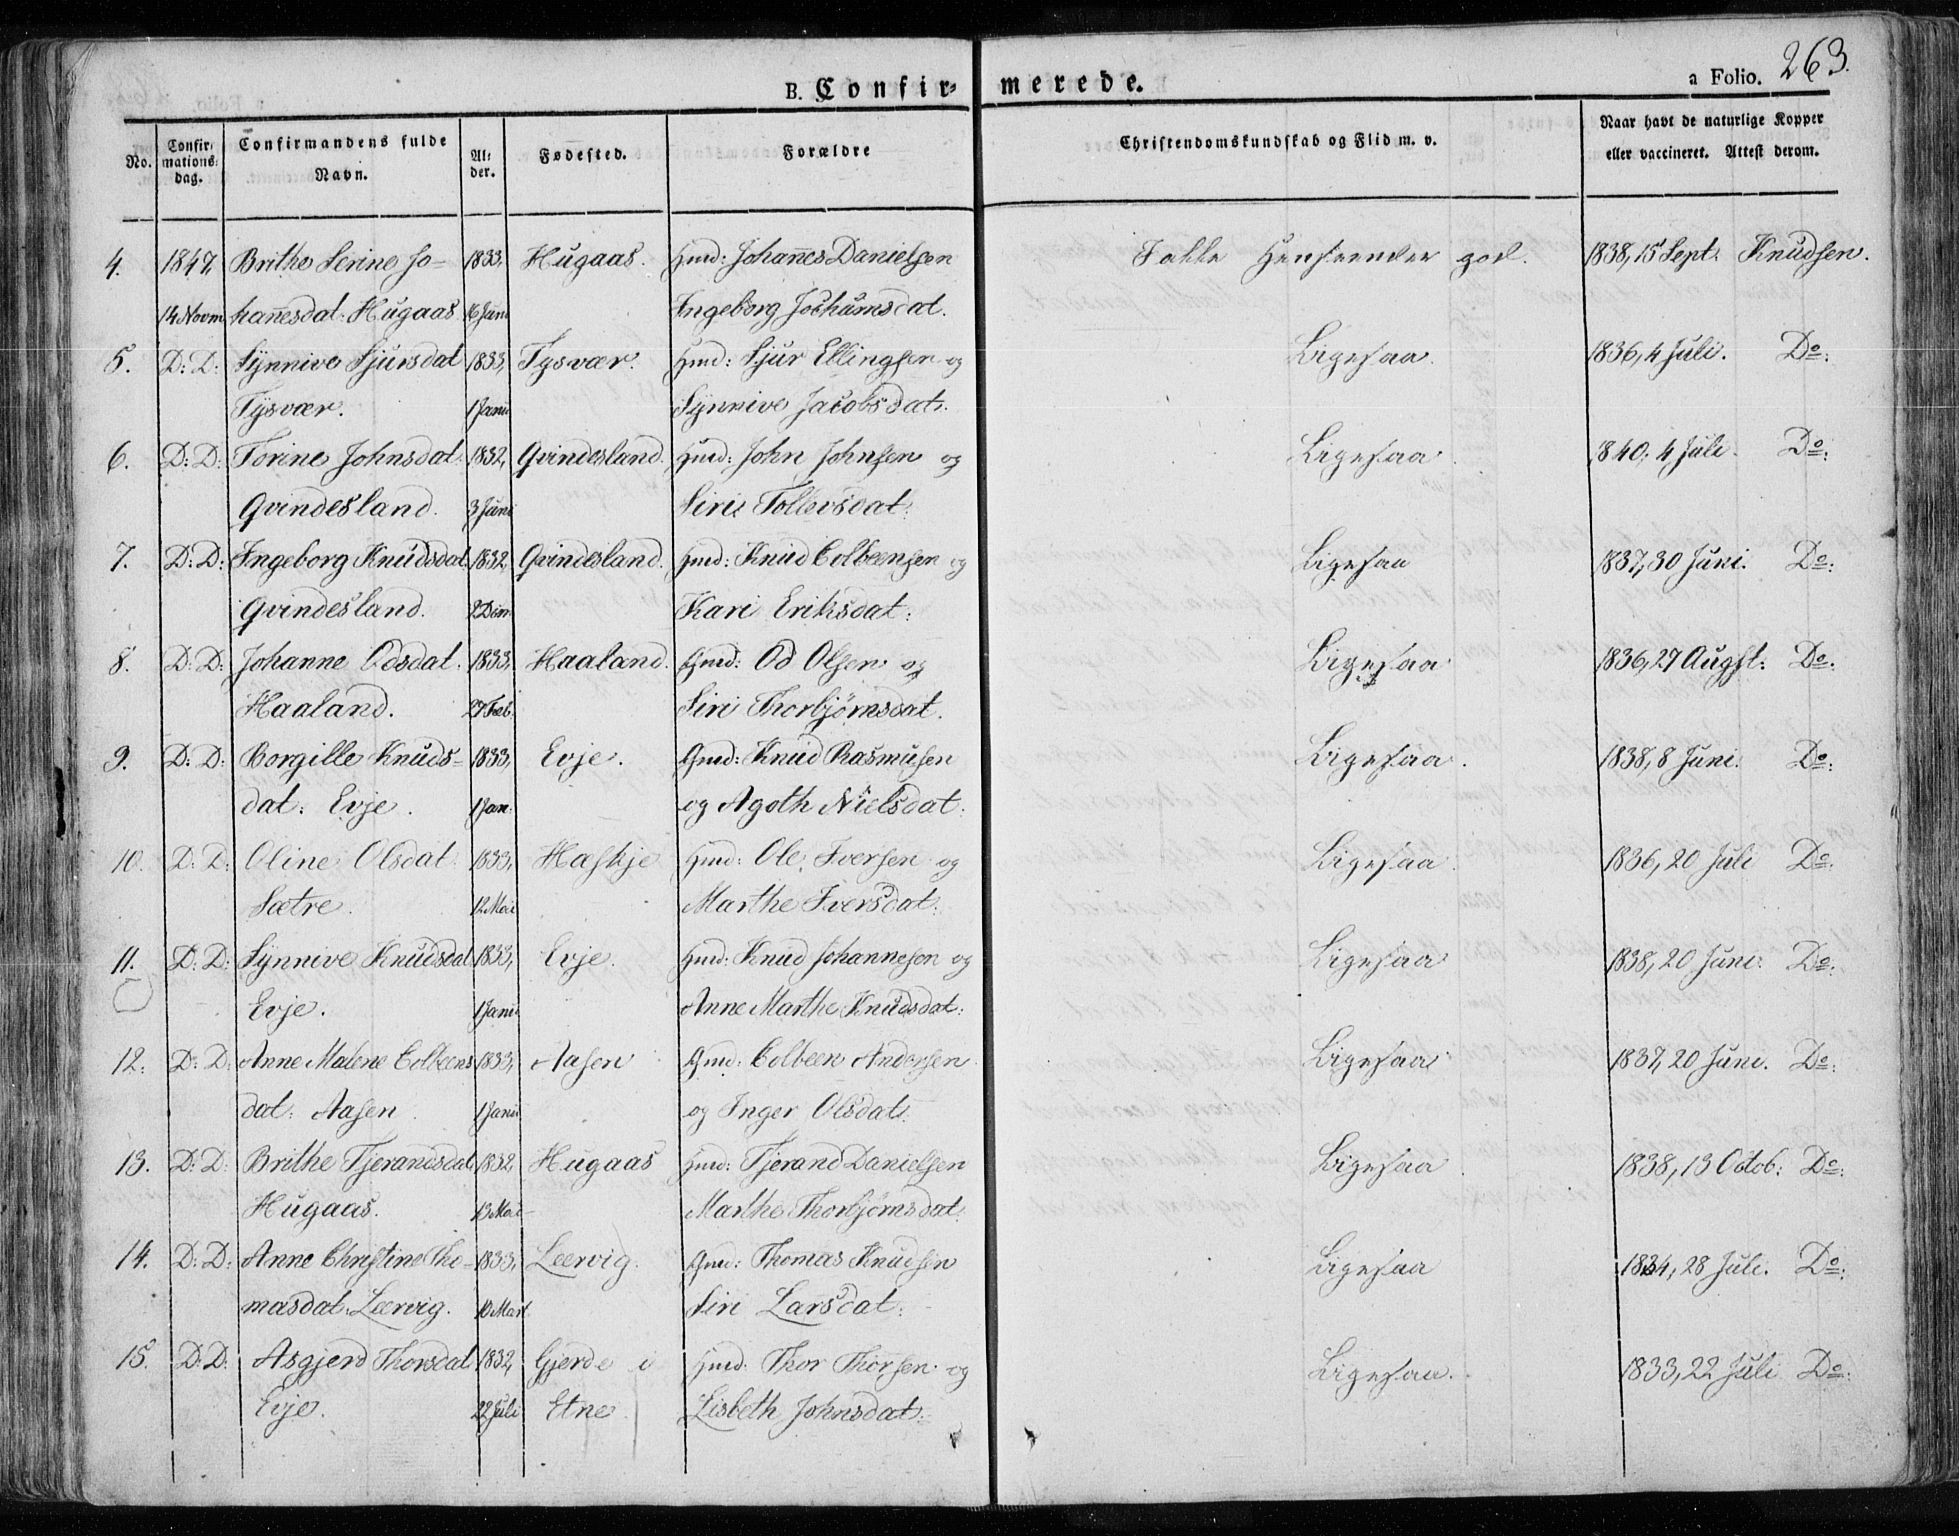 263.
B. Confir- merede. a Folio.
No. Confirmations-dag. Confirmandens fulde Navn. Alder. Fødested. Forældre Christendomskundskab og Flid m. v. Naar havt de naturlige Kopper eller vaccineret. Attest derom.
4. 1847, Brithe Serine Jo- 1833, Hugaas. Gmd: Johannes Danielsen I alle Henseender god. 1838, 15 Sept. Knudsen.
14 Novm hannesdat. Hugaas 16 Juni Ingeborg Jochumsdat.
5. D: D: Synnive Sjursdat 1833, Tysvær. Gmd: Sjur Ellingsen og Ligesaa. 1836, 4 Juli. Do:
Tysvær. 1 Janu Synnive Jacobsdat.
6. D: D: Torine Johnsdat. 1832, Qvindesland. Gmd: John Johnsen og Ligesaa. 1840, 4 Juli. Do:
Qvindesland. 3 Juni Siri Tollevsdat:
7. D: D: Ingeborg Knudsdat. 1832, Qvindesland. Gmd: Knud Colbeensen og Ligesaa 1837, 30 Juni. Do:
Qvindesland. Kari Eriksdat:
8. D: D: Johanne Odsdat. 1833, Haaland. Gmd: Od Olsen og Ligesaa 1836, 27 Augst: Do:
Haaland. 27 Feb. Siri Thorbjørnsdat.
9. D: D: Borgille Knuds- 1833, Evje. Gmd: Knud Rasmusen Ligesaa. 1838, 8 Juni. Do:
dat: Evje. 1 Jan: og Agoth Nielsdat.
10. D: D: Oline Olsdat. 1833, Haskje Gmd: Ole Iversen og Ligesaa. 1836, 20 Juli Do:
Sætre. 12 Mai Marthe Iversdat:
11. D: D: Synnive Knudsdat 1833, Evje. Gmd: Knud Johannesen og Ligesaa 1838, 20 Juni. Do:
Evje. 1 Janu Anne Marthe Knudsdat:
12. D: D: Anne Malene Colbeens 1833, Aasen Gmd: Colbeen Andersen Ligesaa 1837, 20 Juni. Do:
dat: Aasen 1 Janu og Inger Olsdat.
13. D: D: Brithe Tjerandsdat 1832, Hugaas Gmd: Tjerand Danielsen Ligesaa. 1838, 13 Octob: Do:
Hugaas. 13 Mai Marthe Thorbjørnsdat.
14. D: D: Anne Christine Tho- 1833, Leervig. Gmd: Thomas Knudsen Ligesaa 1834, 28 Juli. Do:
masdat. Leervig. 10 Mart Siri Larsdat:
15. D: D: Asgjerd Thorsdat 1832, Gjerde i Gmd: Thor Thorsen og Ligesaa. 1833, 22 Juli Do:
Evje. 22 Juli Etne. Lisbeth Johnsdat: